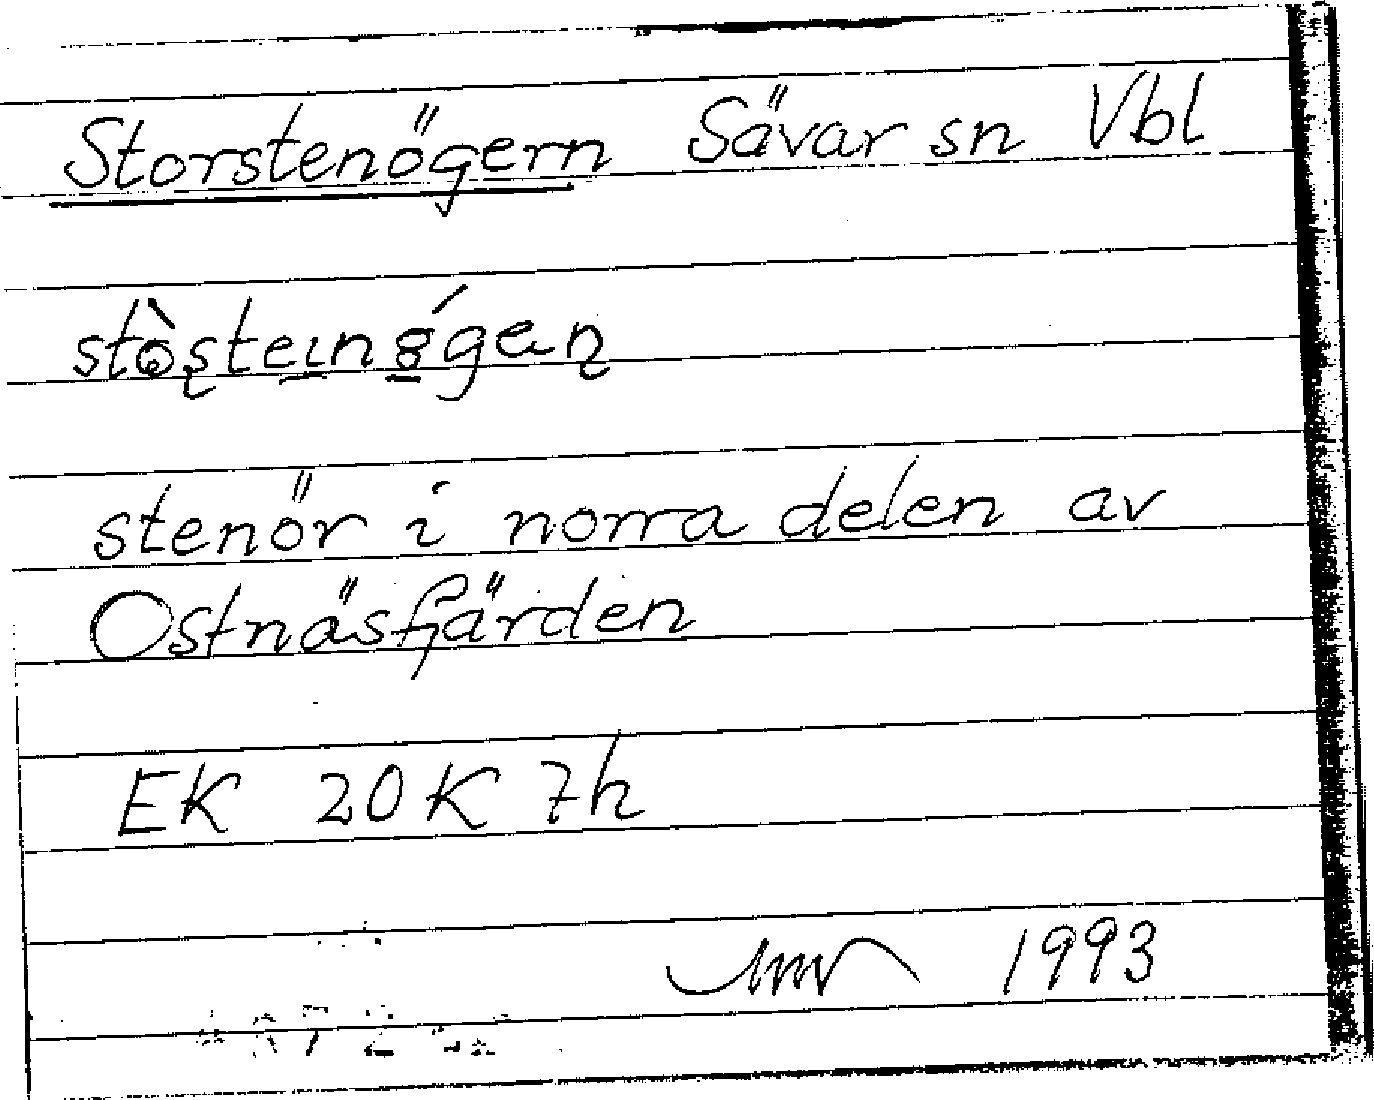 Storstenögern Sävar sn Vbl
stenör i norra delen av
Ostnäsfjärden
EK 20K 7h
1993